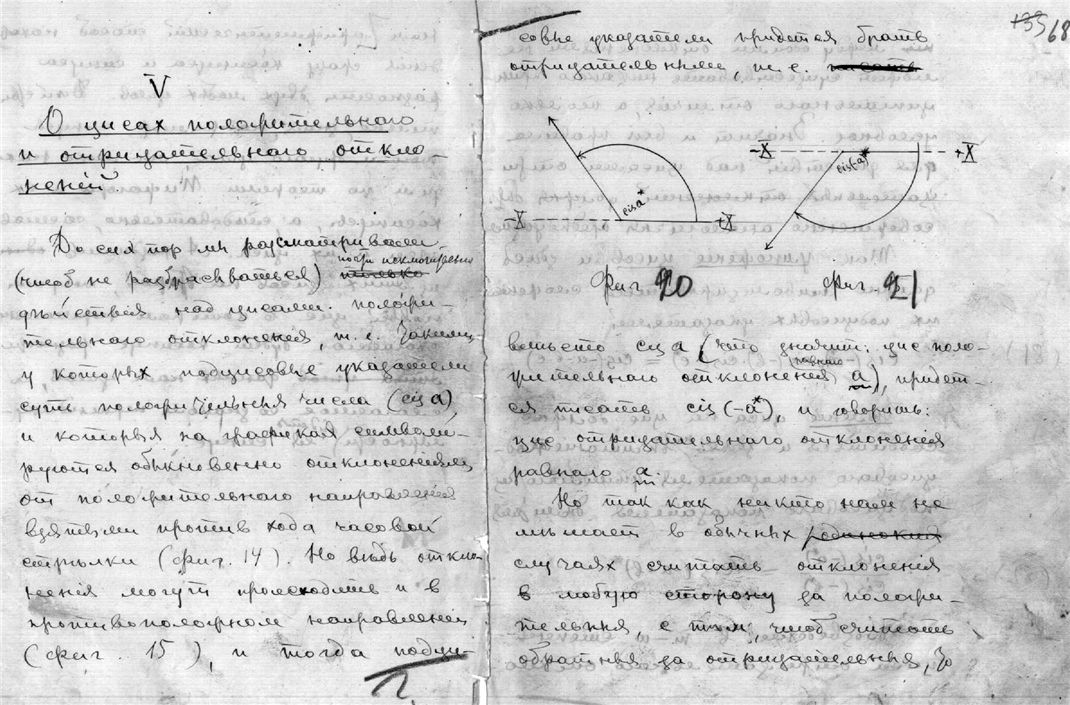 V
О цисах положительнаго
и отрицательнаго откло-
ненiй
До сих пор мы разсматривали
(чтоб не разбрасываться) почти исключительно
только
дѣйствiя над цисами положи-
тельнаго отклоненiя, т.е. такими,
у которых подцисовые указатели
суть положительныя числа (cis a)
и которыя на графиках символи-
руются обыкновенно отклоненiями
от положительнаго направленiя
взятыми против хода часовой
стрѣлки (фиг. 14). Но вѣдь откло-
ненiя могут происходить и в
противоположном направленiи
(фиг. 15), и тогда подци-
133 68
совые указатели придется брать
отрицательными, т.е.
cis a*
-X
+X
-X
cis(-a)*
+X
Фиг 20
Фиг. 21
вмѣсто cis a (что значит: цис поло-
жительнаго отклоненiя равнаго a), придет-
ся писать cis (-a*), и говорить:
цис отрицательнаго отклоненiя
равнаго a
Но так как никто нам не
мѣшает в обычных
случаях считать отклоненiя
в любую сторону за положи-
тельныя, с тѣм, чтоб считать
обратныя за отрицательныя, то